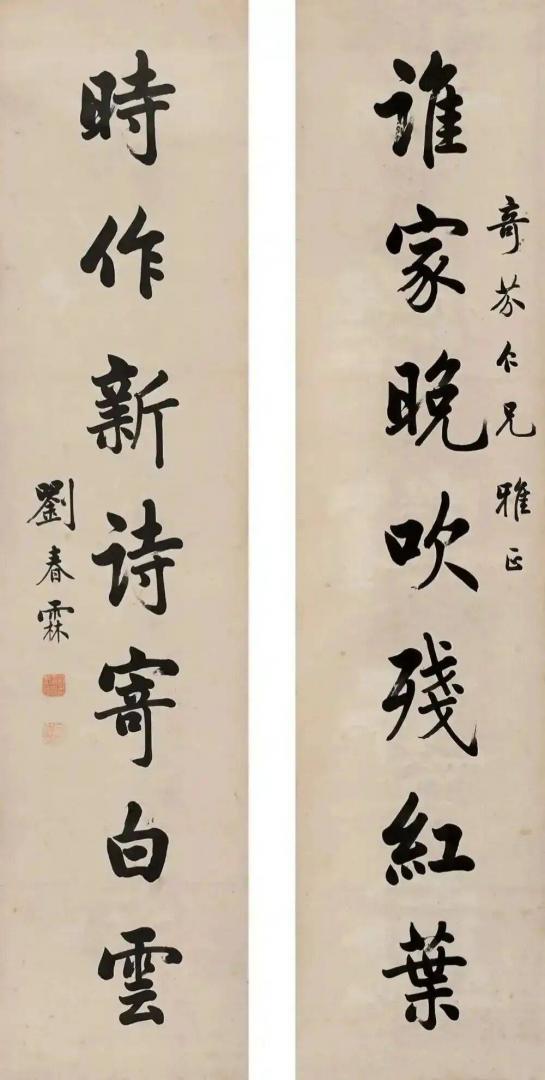 奇芬仁兄雅正
誰家晚吹殘紅葉
時作新詩寄白雲
劉春霖